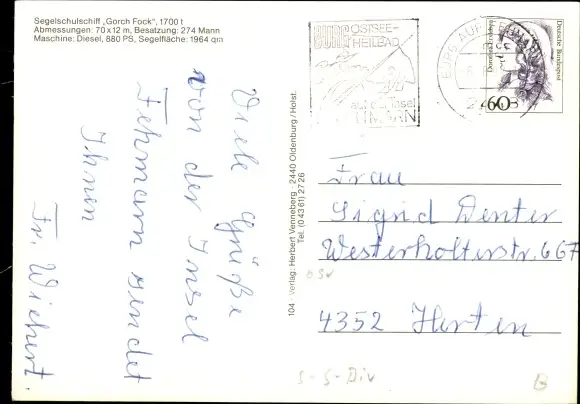 Segelschulschiff „Gorch Fock", 1700 t
Abmessungen: 70 x 12 m, Besatzung: 274 Mann
Maschine: Diesel, 880 PS, Segelfläche: 1964 qm
Viele Grüße
von der Insel
Fehmarn sendet
Ihnen
Fr. Wichert
104 · Verlag: Herbert Venneberg · 2440 Oldenburg/Holst.
Tel. (0 43 61) 27 26
BURG OSTSEE-
HEILBAD
auf der Insel
BURG AUF
Deutsche Bundespost
60
Frau
Sigrid Denter
Westerholterstr. 667
4352 Herten
S-S-Div
B